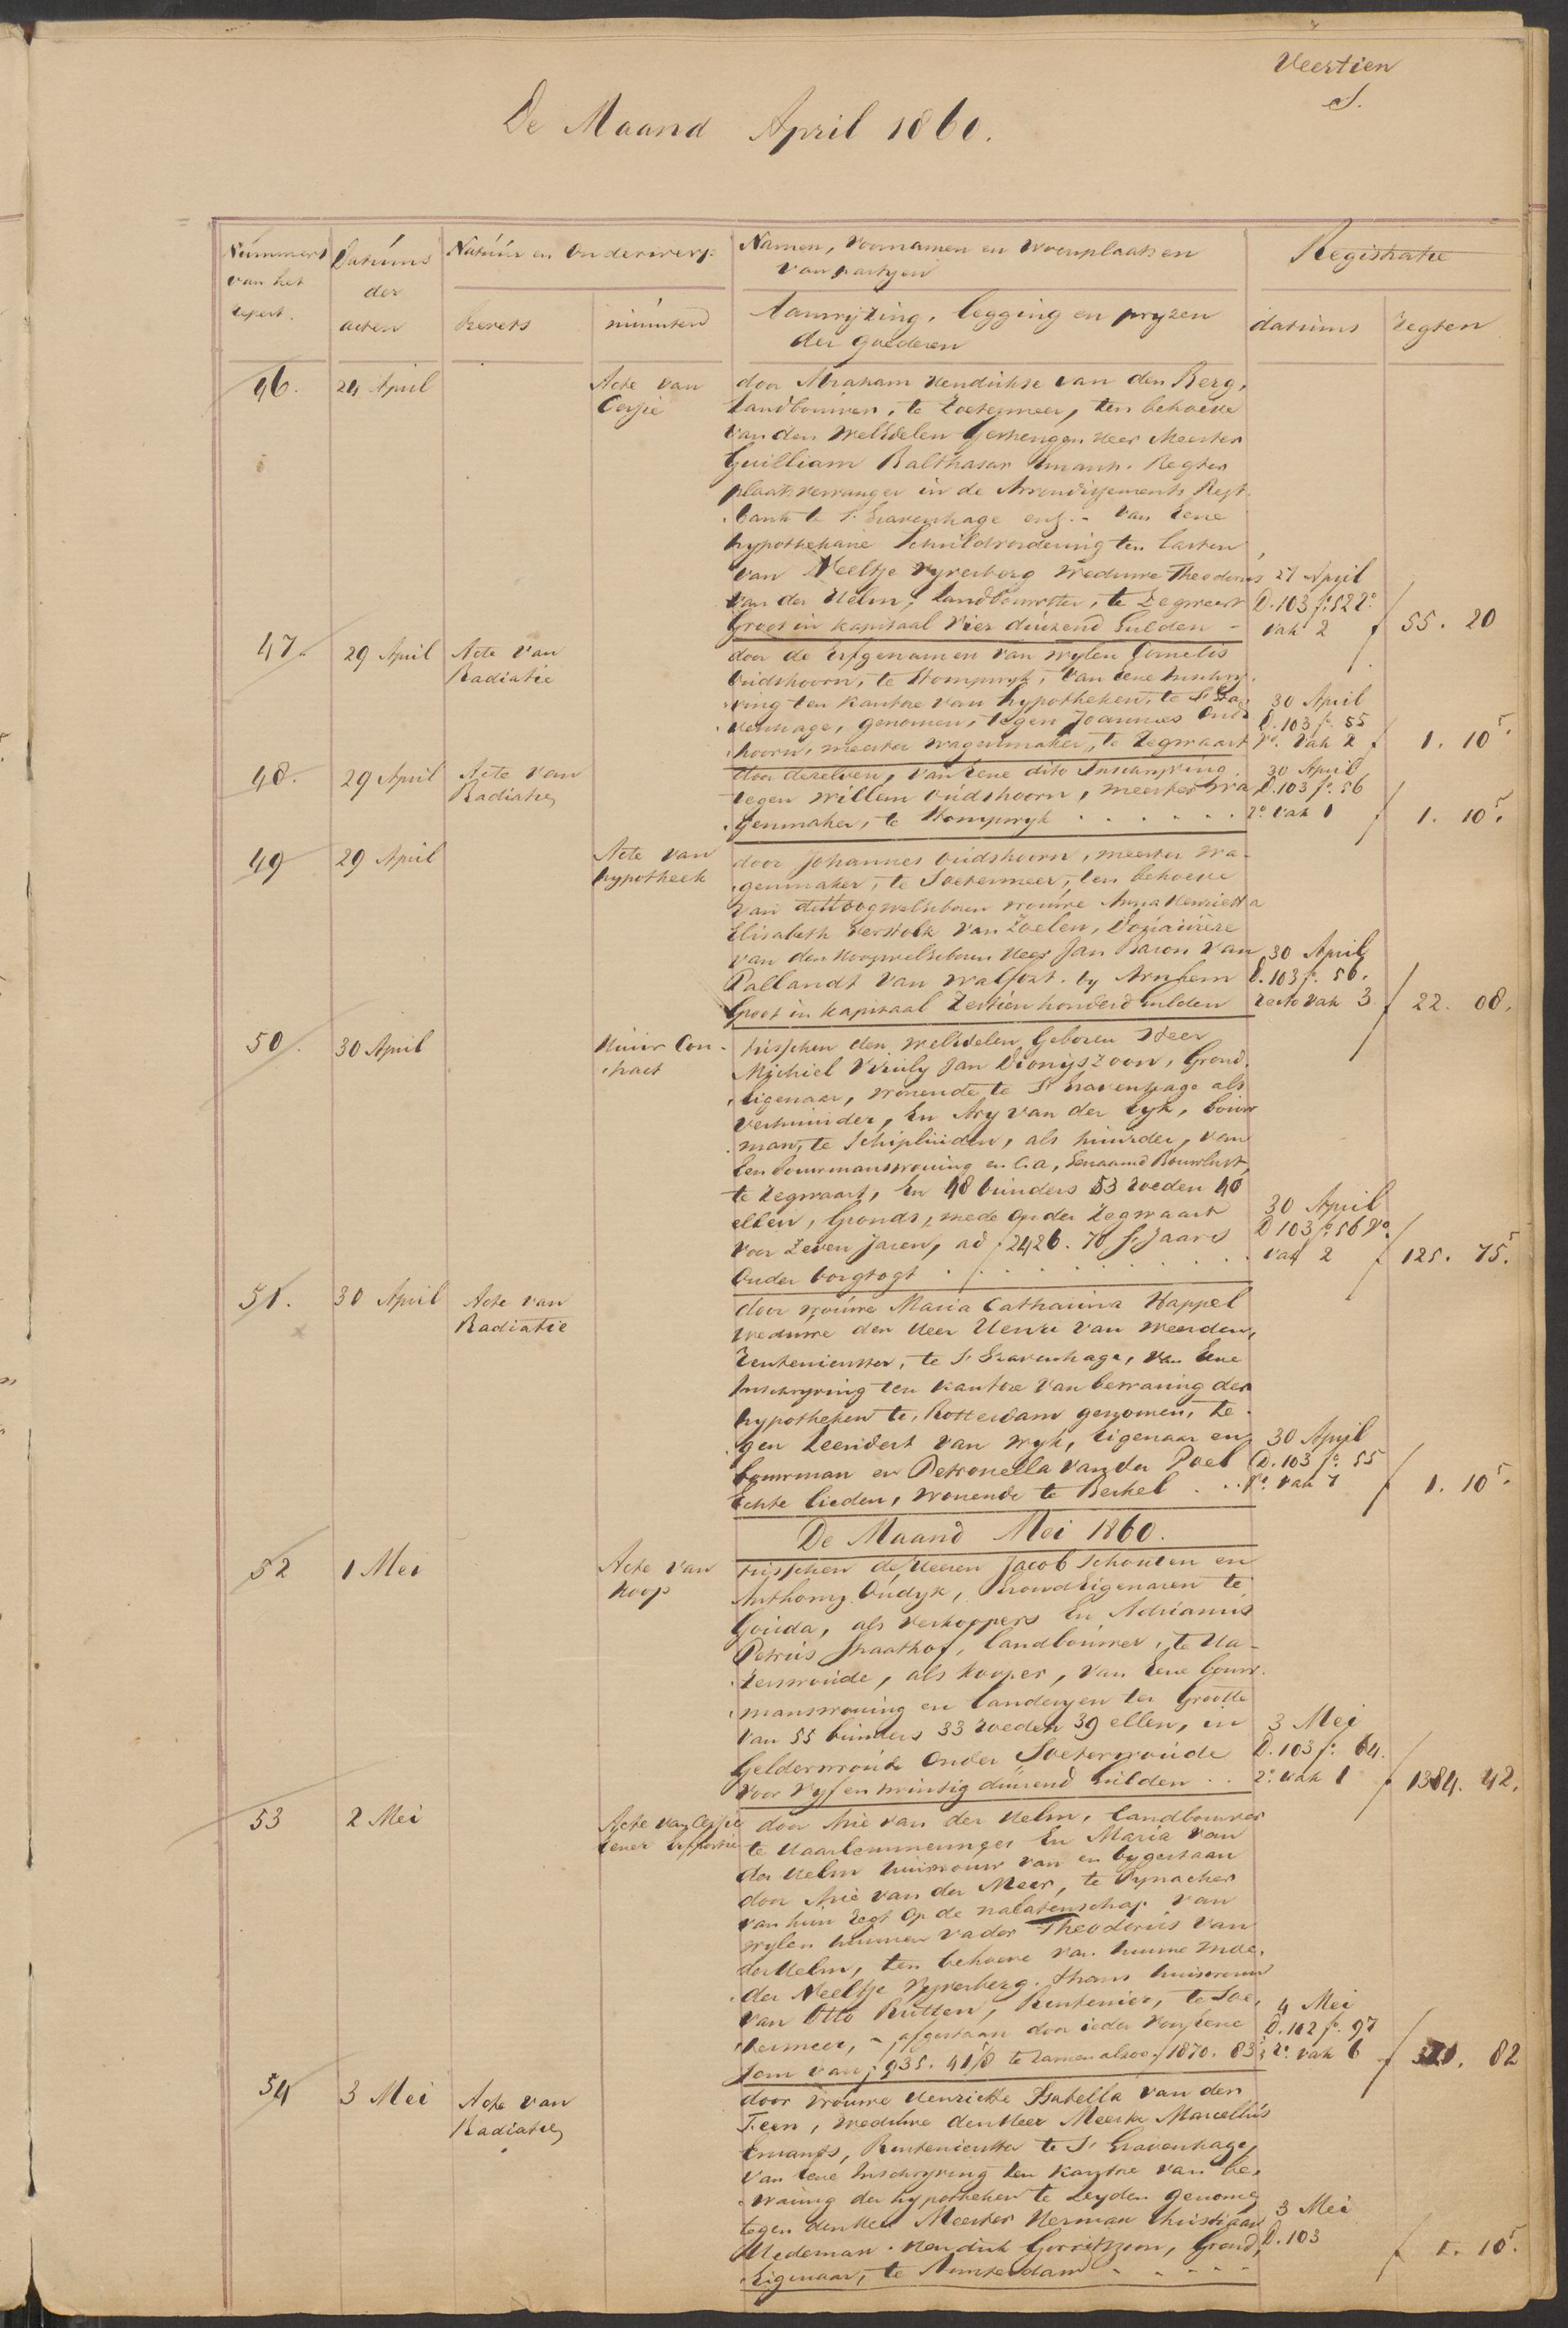 Veertien
S.
De Maand April 1860.
Nummers van het repert.
Datums der acten
Natuur en Onderwerp
Namen, Voornamen en Woonplaatsen
van partyen
Registratie
brevets
minuten
Aanwyzing, legging en pryzen
der goederen
datums
regten
46.
24 April
Acte van
Cessie
door Abraham Hendrikse van den Berg,
Landbouwer, te Zoetermeer, ten behoeve
van den WelEdelen Gestrengen Heer Meester
Guilliam Balthasar Emants. Regter
plaatsvervanger in de Arrondissements Regt-
bank te 's Gravenhage enz. - van Eene
hypothekaire Schuldvordering ten lasten
van Neeltje Vyverberg Weduwe Theodorus
van der Helm, Landbouwster, te Zegwaart
Groot in kapitaal Vier duizend Gulden -
27 April
D. 103 fo. 52 ro.
vak 2
f 55. 20
47.
29 April
Acte van
Radiatie
door de Erfgenamen van wylen Cornelis
Oudshoorn, te Stompwyk, van eene Inschry-
ving ten kantore van hypotheken, te 's Gra-
venhage, genomen, tegen Joannes Ouds
hoorn, meester wagenmaker, te Zegwaart
30 April
D. 103 fo. 55
Vo. Vak 2
f 1. 10 5.
48.
29 April
Acte van
Radiatie
door dezelven, van Eene dito Inschryving
tegen Willem Oudshoorn, meester wa
genmaker, te Stompwyk . . . . . .
30 April
D. 103 fo. 56
ro. vak 1
f 1. 10 5.
49
29 April
Acte van
hypotheek
door Johannes Oudshoorn, meester wa-
genmaker, te Soetermeer, ten behoeve
van de Hoogwelgeboren vrouwe Anna Henrietta
Elisabeth Verstolk van Zoelen, Douairière
van den Hoogwelgeboren Heer Jan Baron van
Pallandt van Walfort. by Arnhem
Groot in kapitaal Zestien honderd Gulden
30 April
D. 103 fo. 56.
recto vak 3
f 22. 08.
50.
30 April
Huur Con-
tract
tusschen den WelEdelen Geboren Heer
Michiel Viruly Jan Dionyszoon, Grond-
Eigenaar, wonende te 's Gravenhage als
verhuurder, En Ary van der Eyk, bouw
man, te Schipluiden, als huurder, van
Een bouwmanswoning en C.a., Genaamd Bouwlust,
te Zegwaart, En 48 bunders 53 roeden 40
ellen, Gronds, mede Onder Zegwaart
Voor Zeven Jaren, ad f 2426. 70 's Jaars
Onder borgtogt . . . . . . . .
30 April
D 103 fo. 56 Vo.
vak 2
f 125. 75 5.
51.
30 April
Acte van
Radiatie
door vrouwe Maria Catharina Happel
Weduwe den Heer Henri van Weerden,
Rentenierster, te 's Gravenhage, van Eene
Inschryving ten kantore van bewaring der
hypotheken te, Rotterdam genomen, te-
gen Leendert van Wyk, Eigenaar en
bouwman en Petronella van der Poel
Echte lieden, wonende te Berkel . .
30 April
D. 103 fo. 55
Vo. vak 7
f 1. 10 5.
De Maand Mei 1860.
52
1 Mei
Acte van
Koop
tusschen de Heeren Jacob Schouten en
Anthony Oudyk, Grond Eigenaren te
Gouda, als verkoopers En Adrianus
Petrus Straathof, landbouwer, te Ha-
zerswoude, als kooper, van Eene bouw-
manswoning en landeryen ter Grootte
van 55 bunders 33 roeden 39 ellen, in
Gelderswoude Onder Soeterwoude
voor Vyf en twintig duizend Gulden . .
3 Mei
D. 103 fo. 64.
ro. vak 1
f 1384. 42.
53
2 Mei
Acte van Cessie
Eener Erfportie
door Arie van der Helm, landbouwer
te Haarlemmermeer En Maria van
der Helm huisvrouw van en bygestaan
door Arie van der Meer, te Pynacker
van hun regt Op de nalatenschap van
wylen hunnen vader Theodorus van
der Helm, ten behoeve van hunne moe-
der Neeltje Vyverberg. thans huisvrouw
van Otto Rutten, Rentenier, te Soe-
termeer, - afgestaan door ieder voor Eene
som van f 935. 41 1/8 te zamen alzoo f 1870. 83
4 Mei
D. 102 fo. 97
ro. vak 6
82
54
3 Mei
Acte van
Radiatie
door vrouwe Henriette Isabella van der
Feen, Weduwe den Heer Meester Marcellus
Emants, Rentenierster te 's Gravenhage,
van eene Inschryving ten kantore van be-
waring der hypotheken te Leyden genomen
tegen den Heer Meester Herman Christiaan
Hendrik Gerritszoon, Grond-
Eigenaar, te Amsterdam - - - - -
3 Mei
D. 103
f 1. 10 5.